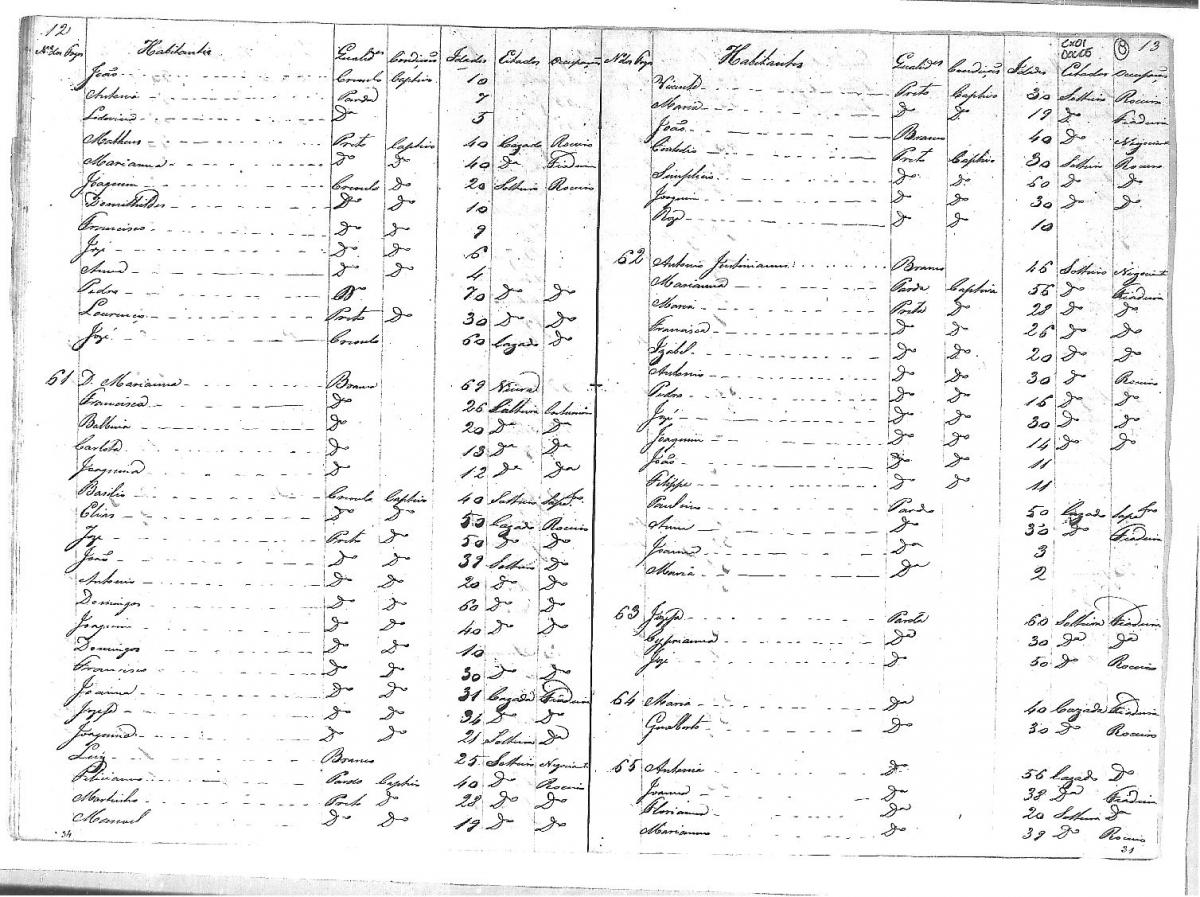 12
Nos dos Fogos Habitantes Qualides Condicão Idades Estados Occupação
João Crioulo Captivo 10
Antonia Parda 7
Ludovina Da 5
Matheus Preto Captivo 40 Cazado Roceiro
Marianna Do Do 40 Da Fiadeira
Joaquim Crioulo Do 20 Solteiro Roceiro
Domithildes Do Do 10
Francisco Do Do 9
Jozé Do Do 6
Anna Do Do 4
Pedro Do 70 Do Do
Lourenço Preto Do 30 Do Do
Jozé Crioulo 60 Cazado Do
61 D. Marianna Branca 69 Viuva
Francisca Do 26 Solteira
Balbina Do 20 Da Da
Carlota Do 13 Da Da
Joaquina Do 12 Da Da
Basilio Crioulo Captivo 40 Solteiro Sapro
Elias Do Do 50 Cazado Roceiro
Joze Preto Do 50 Do Do
João Do Do 39 Solteiro Do
Antonio Do Do 20 Do Do
Domingos Do Do 60 Do Do
Joaquim Do Do 40 Do Do
Domingos Do Do 10
Francisco Do Do 30 Do Do
Joanna Do Do 31 Cazada Fiadeira
Jozefa Do Do 34 Do Do
Joaquina Do Do 21 Solteira Da
Luiz Branco 25 Solteiro Negociante
Feliciano Pardo Captivo 40 Do Roceiro
Martinho Preto Do 28 Do Do
Manoel Do Do 19 Do Do
34
Cx01
Doc05
8
13
Nos dos Fogos Habitantes Qualides Condicão Idades Estados Occupação
Vicente Preto Captivo 30 Solteiro Roceiro
Maria Do Do 19 Do Fiadeira
João Branco 40 Do Negociante
Custodio Preto Captivo 30 Solteiro Roceiro
Simplicio Do Do 60 Do Do
Joaquim Do Do 30 Do Do
Roza Do Do 10
62 Antonio Justiniano Branco 46 Solteiro Negociante
Marianna Parda Captiva 56 Do Fiadeira
Maria Preta Do 28 Do Do
Francisca Do Do 26 Do Do
Izabel Do Do 20 Do Do
Antonio Do Do 30 Do Roceiro
Pedro Do Do 16 Do Do
Jozé Do Do 30 Do Do
Joaquim Do Do 14 Do Do
João Do Do 11
Filippe Do Do 11
Paulino Pardo 50 Cazado Sapro
Anna Do 30 Do Fiadeira
Joanna Da 3
Maria Da 2
63 Jozefa Parda 60 Solteira Fiadeira
Cyprianna Da 30 Da Da
Joze Do 50 Do Roceiro
64 Maria Da 40 Cazada Fiadeira
Gualberto Do 30 Do Roceiro
65 Antonio Do 56 Cazado Do
Joanna Da 38 Da Fiadeira
Floriana Da 20 Solteira Da
Marianno Do 39 Do Roceiro
31